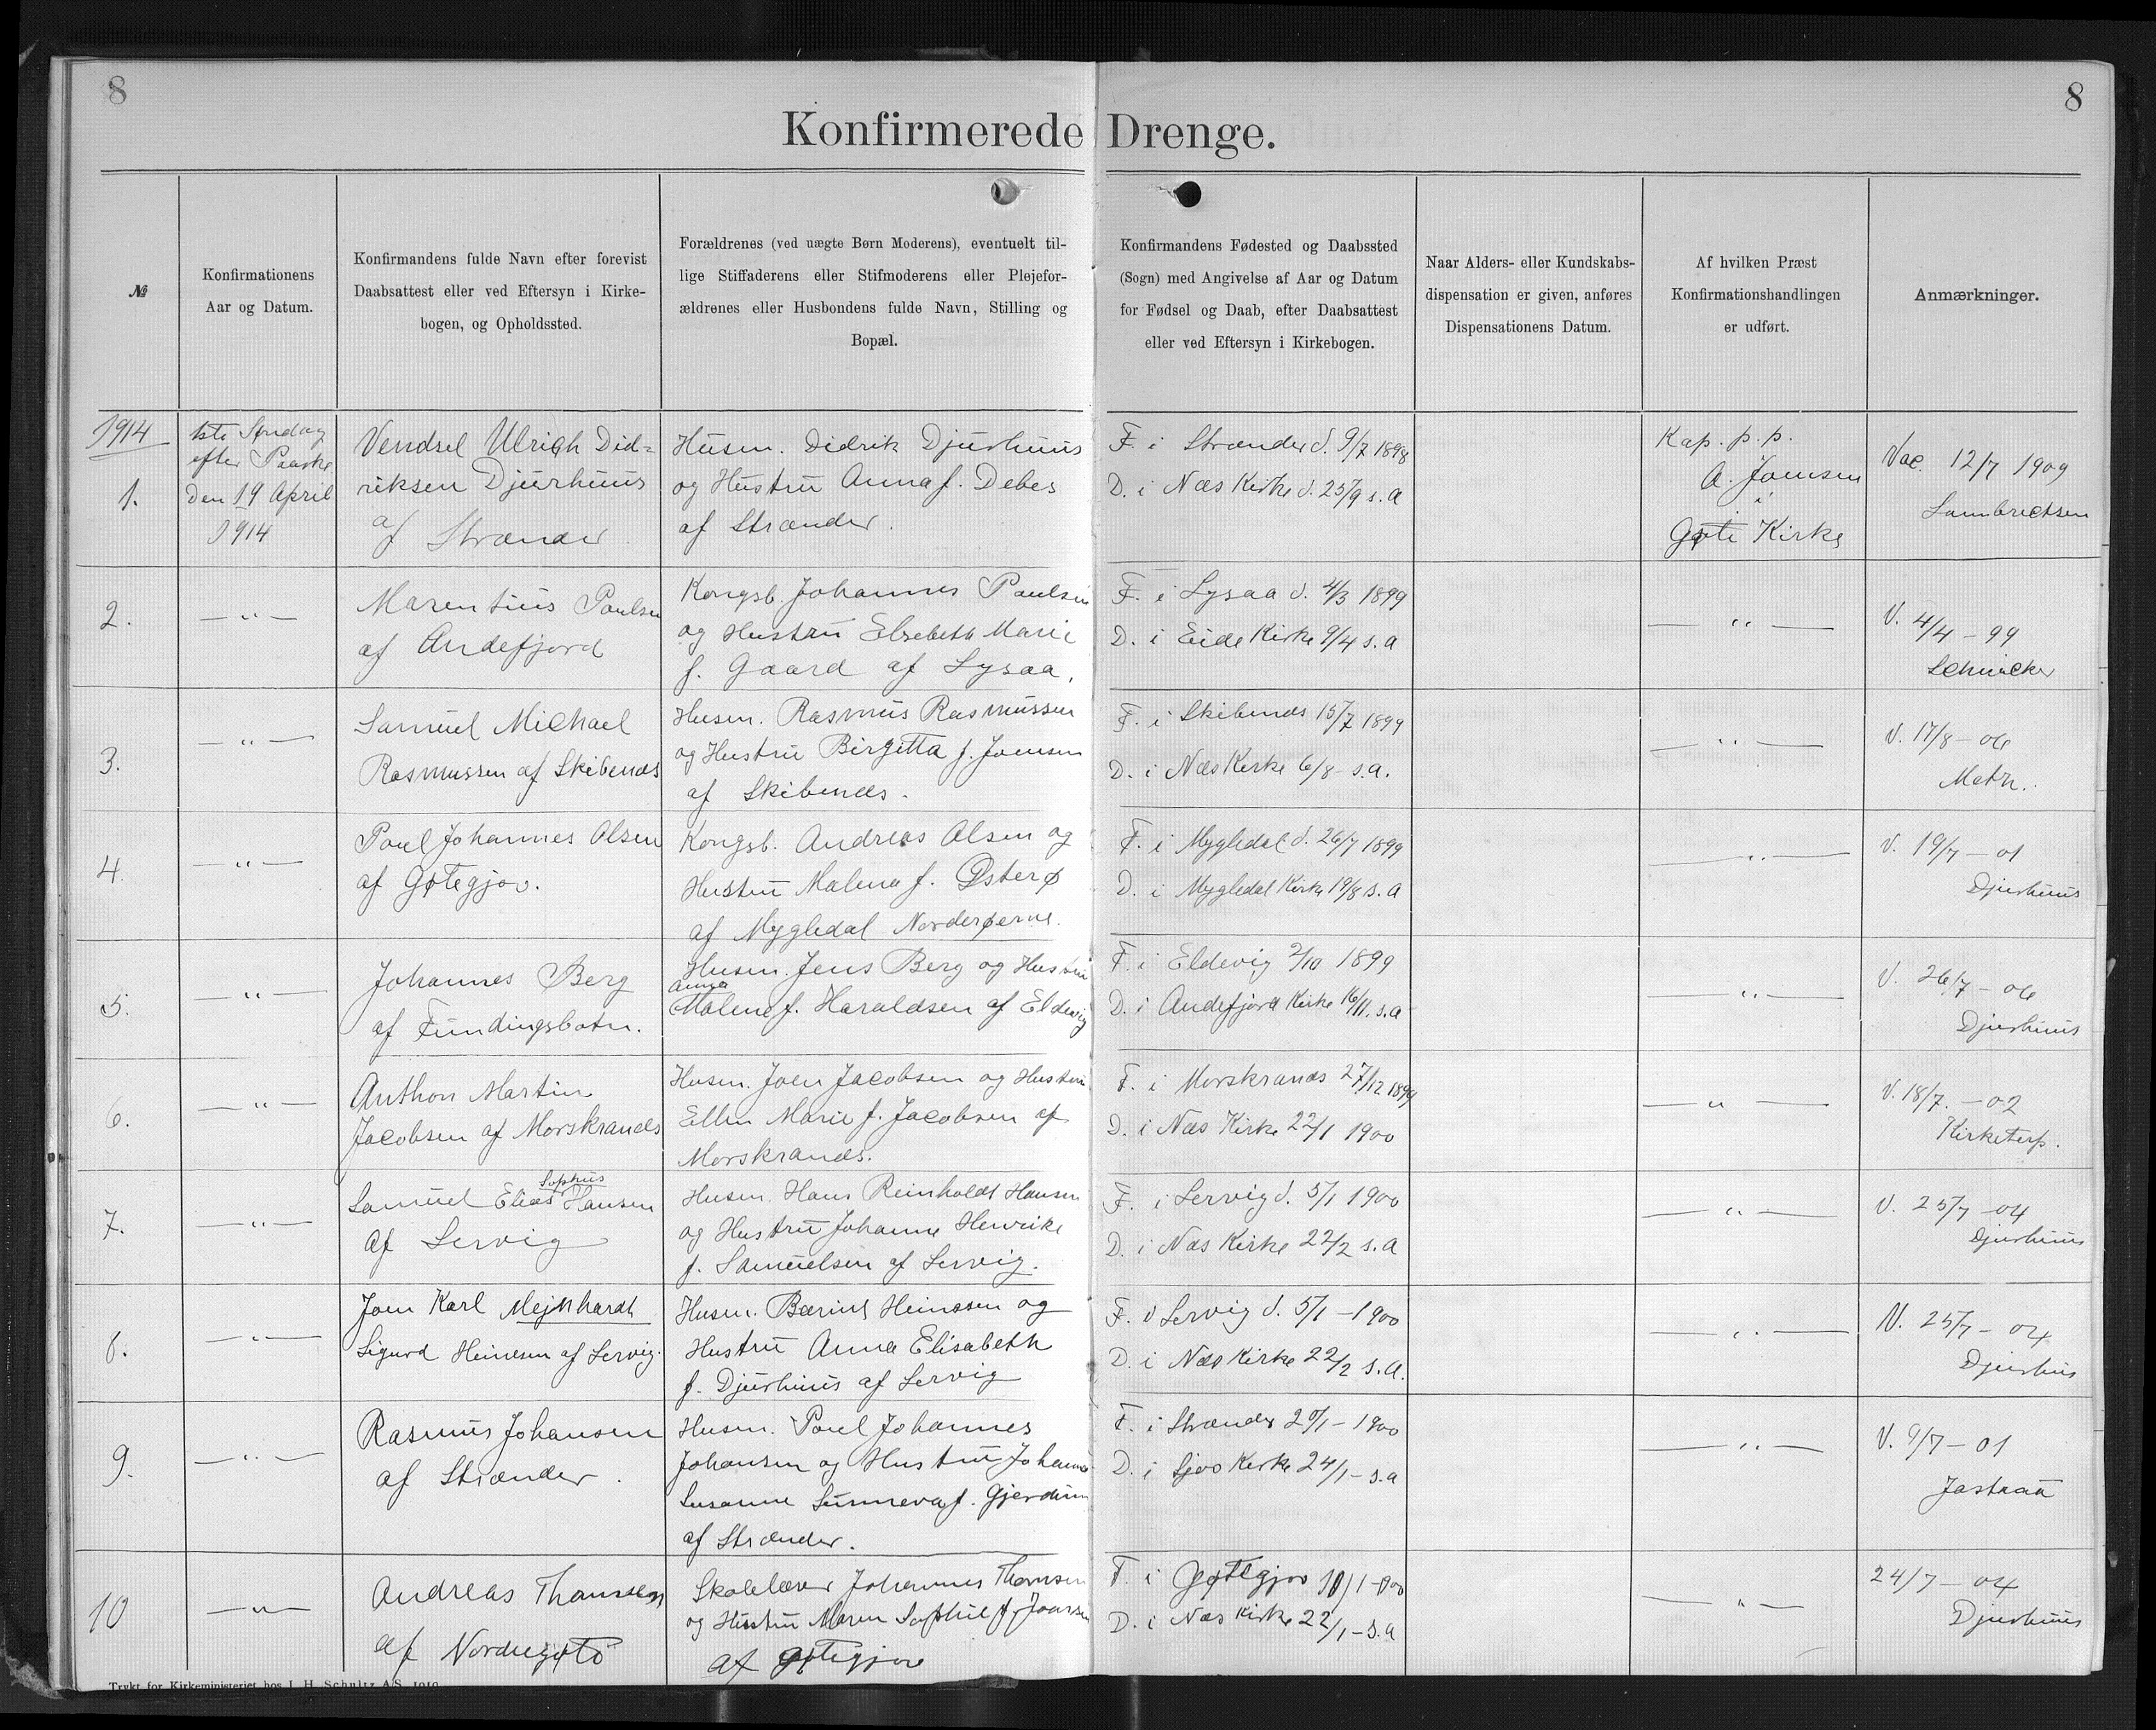 8
8
Konfirmerede Drenge.
№
Konfirmationens
Aar og Datum.
Konfirmandens fulde Navn efter forevist
Daabsattest eller ved Eftersyn i Kirke-
bogen, og Opholdssted.
Forældrenes (ved uægte Børn Moderens), eventuelt til-
lige Stiffaderens eller Stifmoderens eller Plejefor-
ældrenes eller Husbondens fulde Navn, Stilling og
Bopæl.
Konfirmandens Fødested og Daabssted
(Sogn) med Angivelse af Aar og Datum
for Fødsel og Daab, efter Daabsattest
eller ved Eftersyn i Kirkebogen.
Naar Alders- eller Kundskabs-
dispensation er given, anføres
Dispensationens Datum.
Af hvilken Præst
Konfirmationshandlingen
er udført.
Anmærkninger.
1914
1.
1ste Søndag
efter Paaske
Den 19 April
1914
Vendsel Ulrich Did=
riksen Djurhuus
af Strænder
Husm. Didrik Djurhuus
og Hustru Anna f. Debes
af Strænder.
F. i Strænder d. 9/7 1898
D. i Næs Kirke d. 25/9 s. a
Kap. p. p.
A. Joensen
i
Gøte Kirke
Vac. 12/7 1909
Lambrectsen
2.
— " —
Marentius Poulsen
af Andefjord
Kongsb. Johannes Paulsen
og Hustru Elsebeth Marie
f. Gaard af Lysaa,
F. i Lysaa d. 4/3 1899
D. i Eide Kirke 9/4 s. a
— " —
V. 4/4 - 99
3.
— " —
Samuel Michael
Rasmussen af Skibenæs
Husm. Rasmus Rasmussen
og Hustru Birgitta f. Joensen
af Skibenæs.
F. i Skibenæs 15/7 1899
D. i Næs Kirke 6/8 s. a.
— " —
V. 17/8 - 06
4.
— " —
Poul Johannes Olsen
af Gøtegjov.
Kongsb. Andreas Olsen og
Hustru Malena f. Østerø
af Mygledal Norderøerne.
F. i Mygledal d. 26/7 1899
D. i Mygledal Kirke 19/8 s. a
— " —
V. 19/7 - 01
Djurhuus
5.
— " —
Johannes Berg
af Fundingsbotn.
Husm. Jens Berg og Hustru
Anna
Malene f. Haraldsen af Eldevig
F. i Eldevig 2/10 1899
D. i Andefjord Kirke 16/11. s. a
— " —
V. 26/7 - 06
Djurhuus
6.
— " —
Anthon Martin
Jacobsen af Morskranæs
Husm. Joen Jacobsen og Hustru
Ellen Marie f. Jacobsen af
Morskranæs.
F. i Morskranæs 27/12 1899
D. i Næs Kirke 22/1 1900
— " —
V. 18/7. - 02
Kirketerp.
7.
— " —
Sophus
Samuel Elias Hansen
af Lervig
Husm. Hans Reinholdt Hansen
og Hustru Johanne Henrike
f. Samuelsen af Lervig.
F. i Lervig d. 5/1 1900
D. i Næs Kirke 22/2 s. a
— " —
V. 25/7 - 04
Djurhuus
8.
— " —
Joen Karl Mejnhardt
Sigurd Heinesen af Lervig.
Husm. Bærint Heinesen og
Hustru Anna Elisabeth
f. Djurhuus af Lervig
F. i Lervig d. 5/1 - 1900
D. i Næs Kirke 22/2 s. a.
— " —
V. 25/7 - 04
Djurhus
9.
— " —
Rasmus Johansen
af Strænder.
Husm. Poul Johannes
Johansen og Hustru Johanne
Susanne Sunneva f. Gjerdum
af Strænder.
F. i Strænder 20/1 - 1900
D. i Sjov Kirke 24/1 - s. a
— " —
V. 9/7 - 01
Jastrau
10
— " —
Andreas Thomsen
af Nordregøtø
Skolelærer Johannes Thomsen
og Hustru Maren Sophie f. Joensen
af Gøtegjov
F. i Gøtegjov 10/1 - 900
D. i Næs Kirke 22/1 - s. a
— " —
24/7 - 04
Djurhuus
Trykt for Kirkeministeriet hos J. H. Schultz A/S. 1910